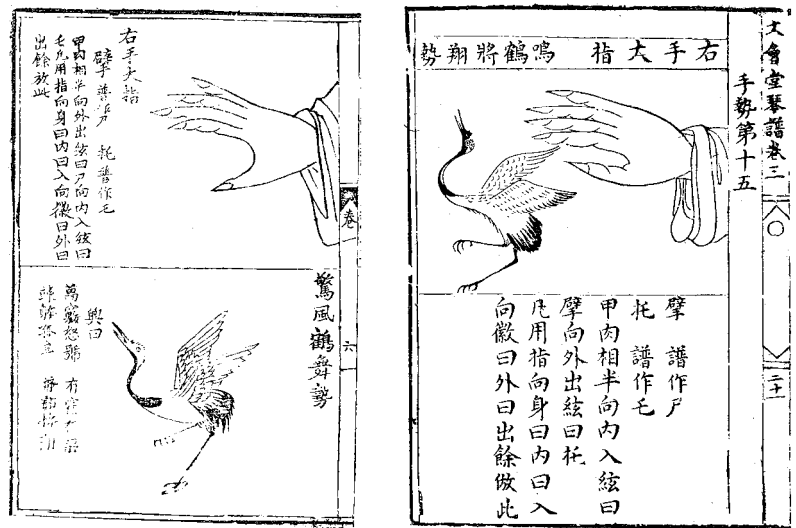 文會堂琴譜卷三
二十一
手勢第十五
右手大指 鳴鶴將翔勢
擘 譜作尸
托 譜作乇
甲肉相半向內入絃曰
擘向外出絃曰托
凡用指向身曰內曰入
向徽曰外曰出餘倣此
卷一
六
右手大指
擘 譜作尸 托 譜作乇
甲肉相半向外出絃曰尸向內入絃曰
乇凡用指向身曰內曰入向徽曰外曰
出餘放此
驚風鶴舞勢
興曰
萬竅怒號 有
將翱將翔